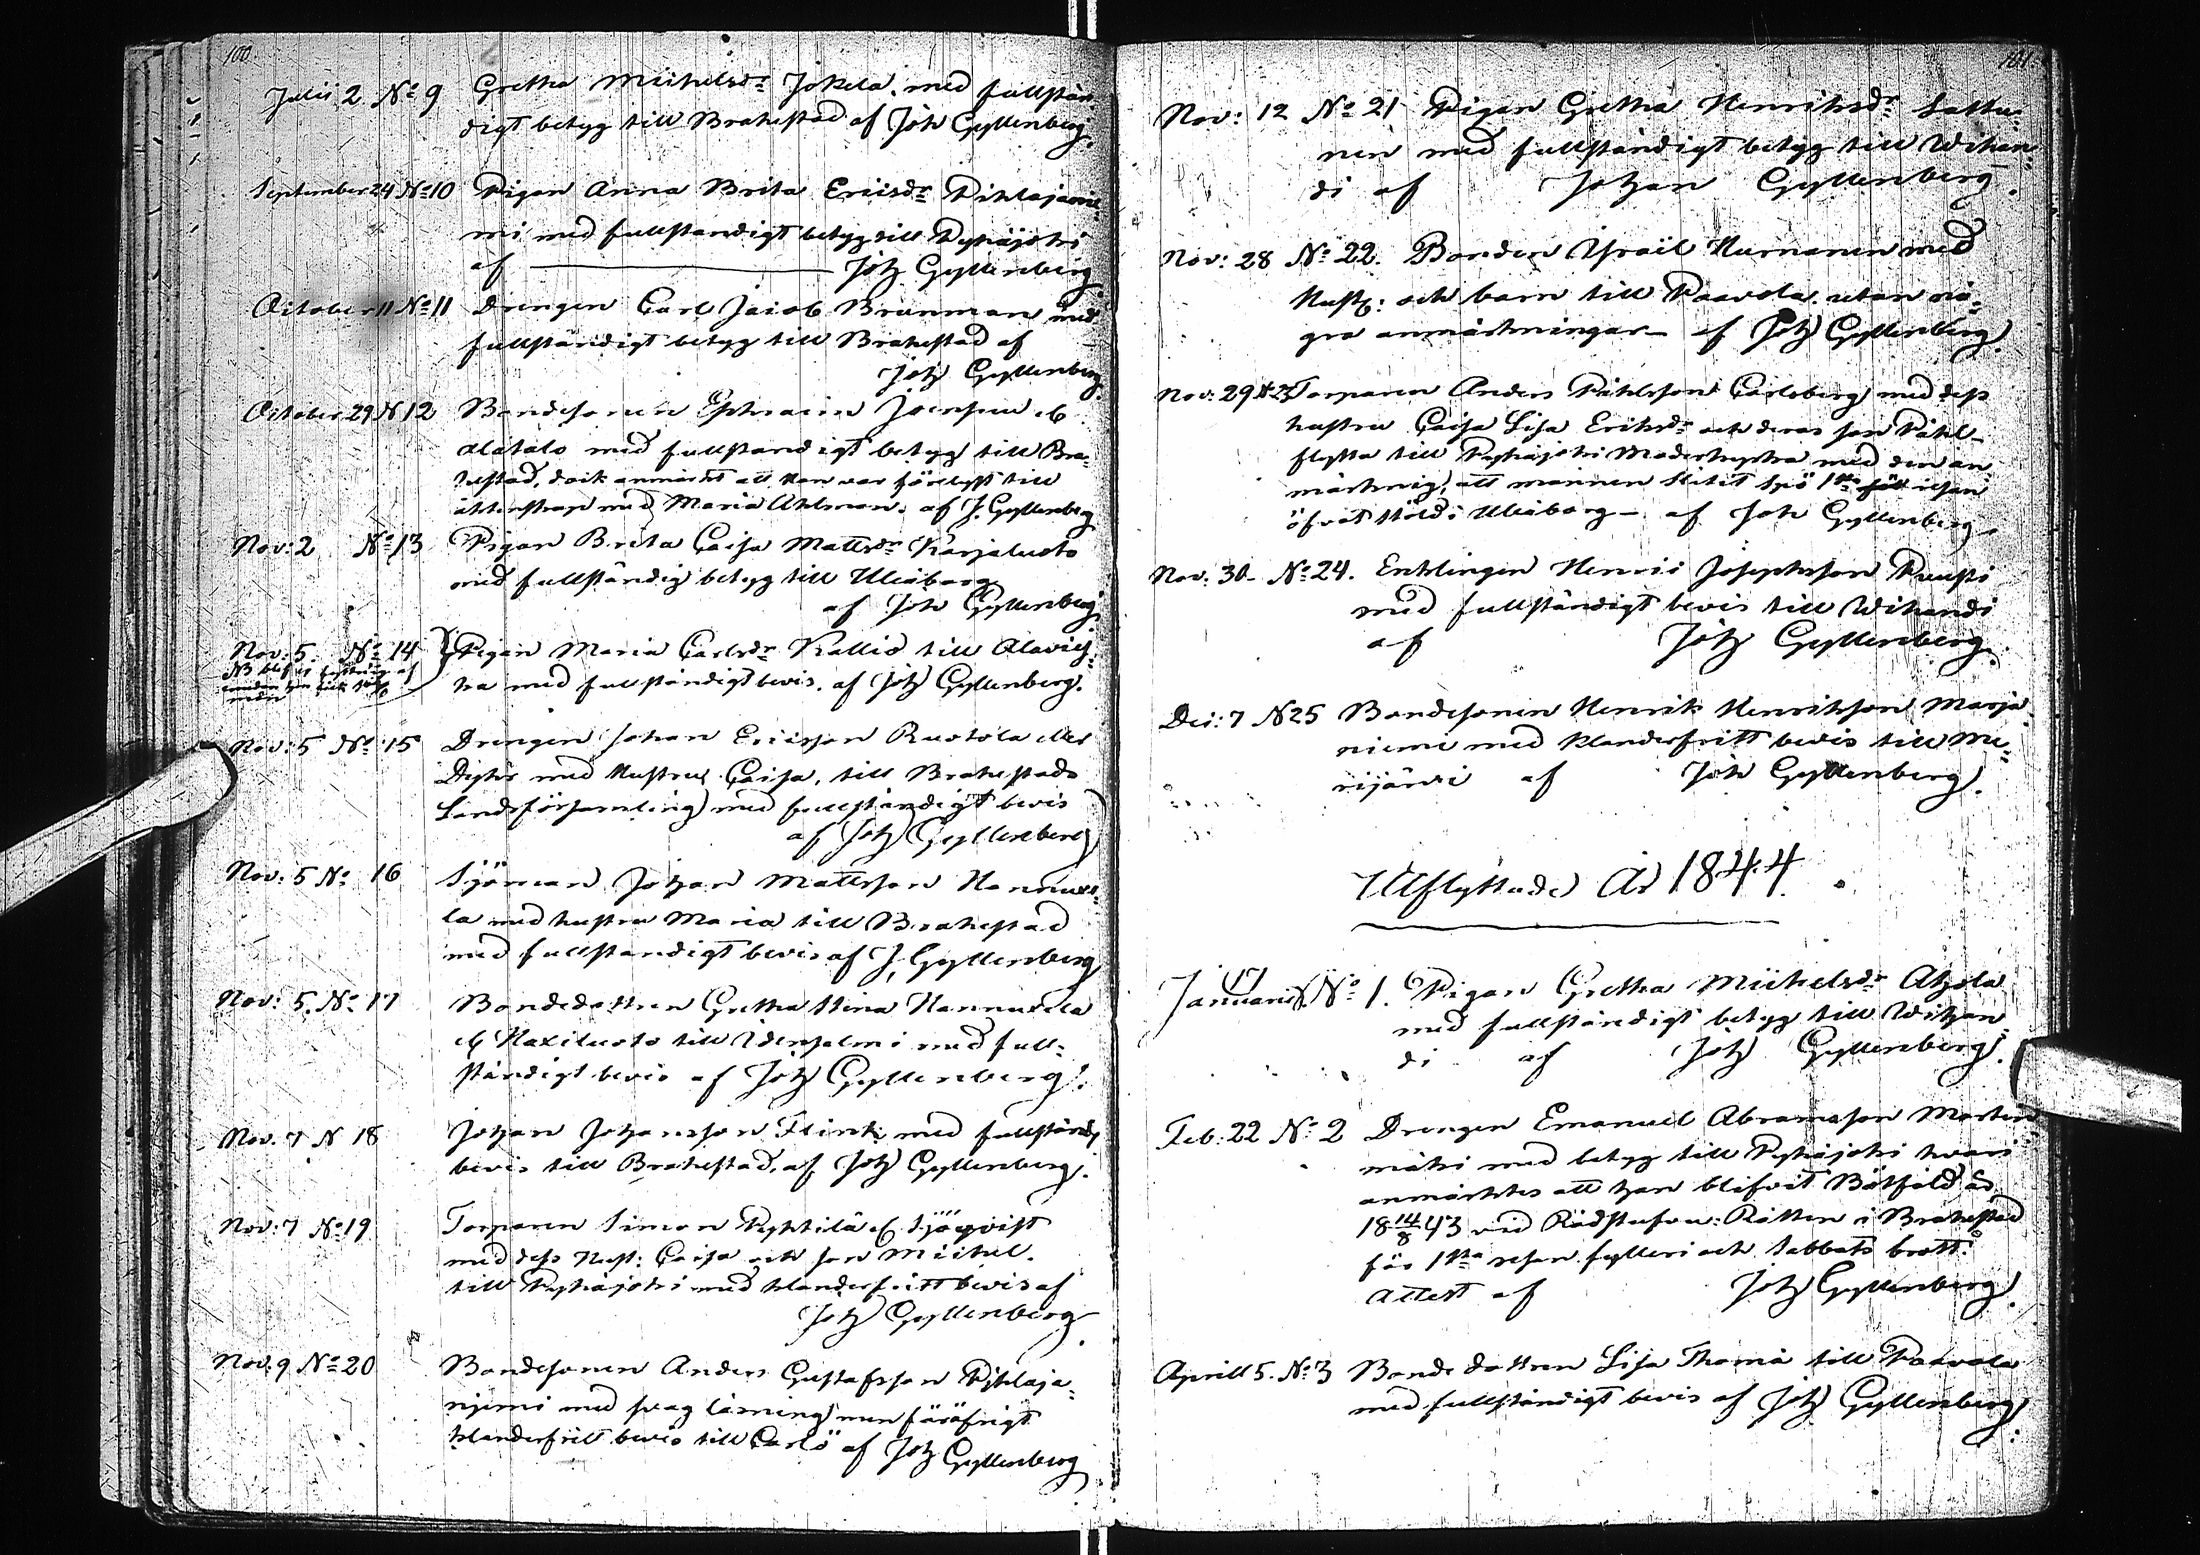 100
Julii 2 No 9 Gretha Michelsdr Jokela, med fullstän-
digt betyg till Brahestad af Joh Gyllenberg.
September 24 No 10 Pigan Anna Brita Ericsdr Pihlajanie-
mi med fullständigt betyg till Pyhäjoki
af — Joh Gyllenberg
October 11 No 11 Drengen Carl Jacob Brunman med
fullständigt betyg till Brahestad af
Joh Gyllenberg
October 29 N 12 Bondesonen Ephraim
Alatalo med fullständigt betyg till Bra-
hestad, dock anmärkt att han var förlyst till
äktenskap med Maria Ahlman. af J. Gyllenberg
Nov: 2 No 13 Pigan Brita Caisa Mattsdr Karjaluoto
med fullständig betyg till Uleåborg
af Joh Gyllenberg
Nov: 5. No 14 Pigan Maria Carlsdr Kallio till Alavies-
ka med fullständigt bevis. af Joh Gyllenberg.
NB
Nov: 5 No 15 Drengen Johan Ericsson Ruotola eller
med Hustru Caisa, till Brahestads
Landsförsamling med fullständigt bevis
af Joh Gyllenberg
Nov: 5 No 16 Sjöman Johan Mattsson Hannuxe-
la med hustru Maria till Brahestad
med fullständigt bevis af J. Gyllenberg
Nov: 5. No 17 Bondedottren Gretha Stina Hannuxela
till Idensalmi med full-
ständigt bevis af Joh Gyllenberg.
Nov. 7 N 18 Johan Johansson Flink med fullständ.
bevis till Brahestad, af Joh Gyllenberg.
Nov: 7 No 19 Torparen Simon Sjöqvist
med dess Hust: Caisa och son Michel.
till Pyhäjoki med klanderfritt bevis af
Joh Gyllenberg
Nov: 9 No 20 Bondesonen Anders Gustafsson Pihlaja-
niemi med svag läsning men föröfrigt
klanderfritt bevis till Carlö af Joh Gyllenberg
101
Nov: 12 No 21 Pigan Gretha Henriksdr Lattu-
nen med fullständigt betyg till Wihan-
di af Johan Gyllenberg.
Nov: 28 No 22. Bonden Israël Nurnanen med
Hust: och barn till Paavola utan nå-
gra anmärkningar af Joh Gyllenberg.
Nov: 29 No 23 Torparen Anders Påhlsson Carlsberg med dess
hustru Caisa Lisa Eriksdr och deras son Påhl
flytta till Pyhäjoki Moderkyrka med den an-
märkning, att mannen slitit spö 1sta resan
öfvat stöld i Uleåborg — af Joh Gyllenberg.
Nov: 30 No 24. Enklingen Henric Josephsson Ruusti
med fullständigt bevis till Wihandi
af Joh Gyllenberg.
Dec: 7 N 25 Bondesonen Henrik Henriksson Marja-
niemi med klanderfritt bevis till Me-
rijärvi af Joh Gyllenberg.
Utflyttade År 1844.
Januarii 17 No 1. Pigan Gretha Michelsdr Ahola
med fullständigt betyg till Wihan-
di af Joh Gyllenberg.
Feb: 22 No 2 Drengen Emanuel Abramsson Marten-
mäki med betyg till Pyhäjoki hvari
anmärktes att han blifvit Bötfäld år
18 14/8 43 vid Rådstufvu-Rätten i Brahestad
för 1sta resan fylleri och Sabbats brott.
Attest af Joh Gyllenberg.
Aprill 5. No 3 Bonde dottren Lisa Thomä till Paavola
med fullständigt bevis af Joh Gyllenberg.